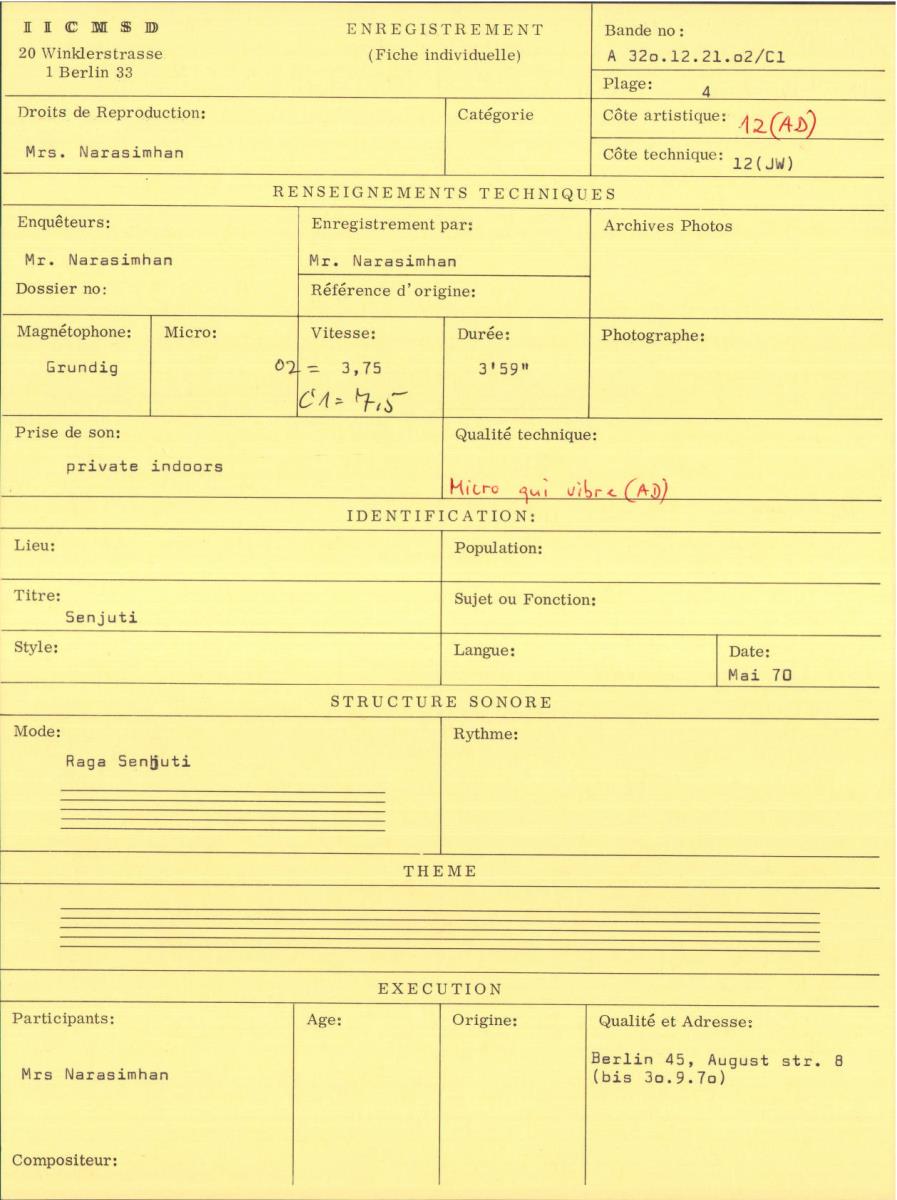 IICMSD
20 Winklerstrasse
1 Berlin 33
ENREGISTREMENT
(Fiche individuelle)
Bande no :
A 32o.12.21.o2/Cl
Plage: 4
Droits de Reproduction:
Mrs. Narasimhan
Catégorie
Côte artistique: 12(AD)
Côte technique: 12(JW)
RENSEIGNEMENTS TECHNIQUES
Enquêteurs:
Mr. Narasimhan
Dossier no:
Enregistrement par:
Mr. Narasimhan
Référence d'origine:
Archives Photos
Magnétophone:
Grundig
Micro:
Vitesse:
02 = 3,75
C1 = 7,5
Durée:
3'59"
Photographe:
Prise de son:
private indoors
Qualité technique:
Micro qui vibre (AD)
IDENTIFICATION:
Lieu:
Population:
Titre:
Senjuti
Sujet ou Fonction:
Style:
Langue:
Date:
Mai 70
STRUCTURE SONORE
Mode:
Raga Senjuti
Rythme:
THEME
EXECUTION
Participants:
Mrs Narasimhan
Age:
Origine:
Qualité et Adresse:
Berlin 45, August str. 8
(bis 3o.9.7o)
Compositeur: